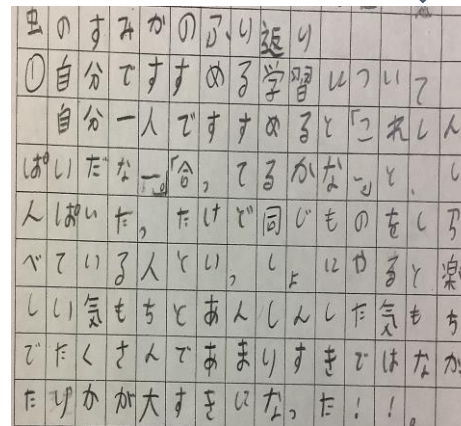 虫のすみかのふり返り
①自分ですすめる学習について
自分一人ですすめると「これしん
ぱいだな－。」「合ってるかな－。」と、し
んぱいだったけど同じものをしら
べている人といっしょにやると楽
しい気もちとあんしんした気もち
でたくさんであまりすきではなか
たりかが大すきになった!!。